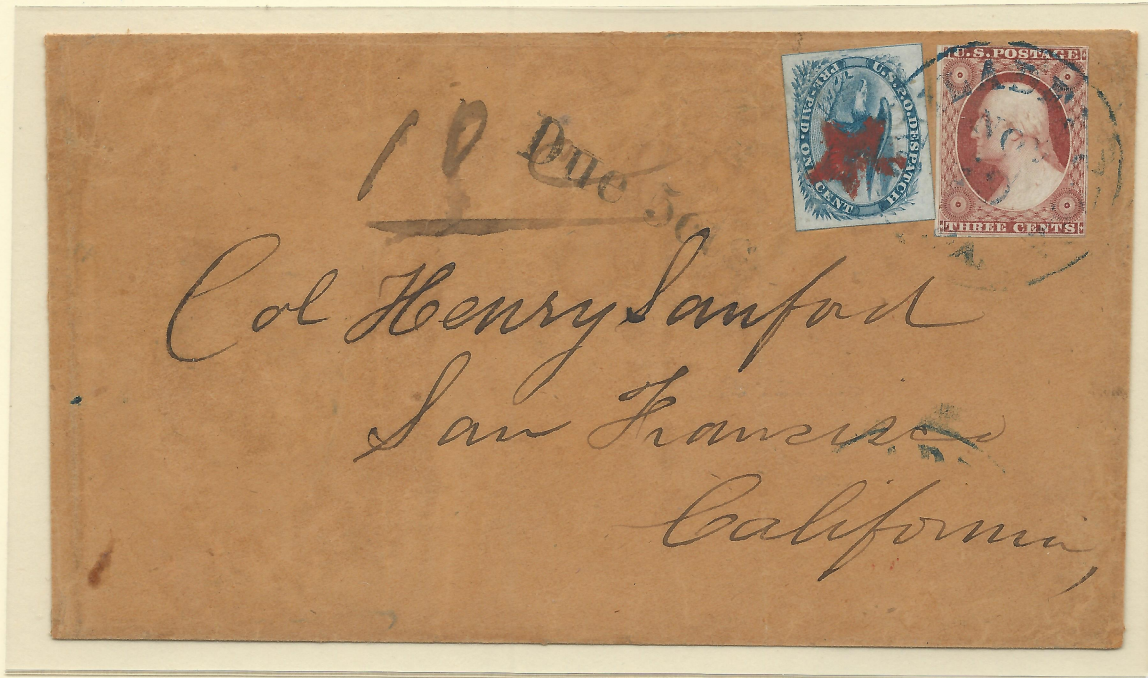 PRE-PAID · U.S.P.O. DESPATCH · ONE CENT
U.S. POSTAGE
THREE CENTS
Due
Col Henry Sanford
San Francisco
California,